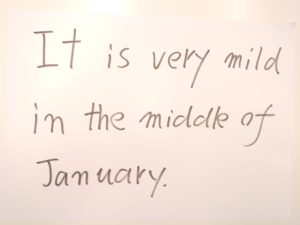 It is very mild
in the middle of
January.